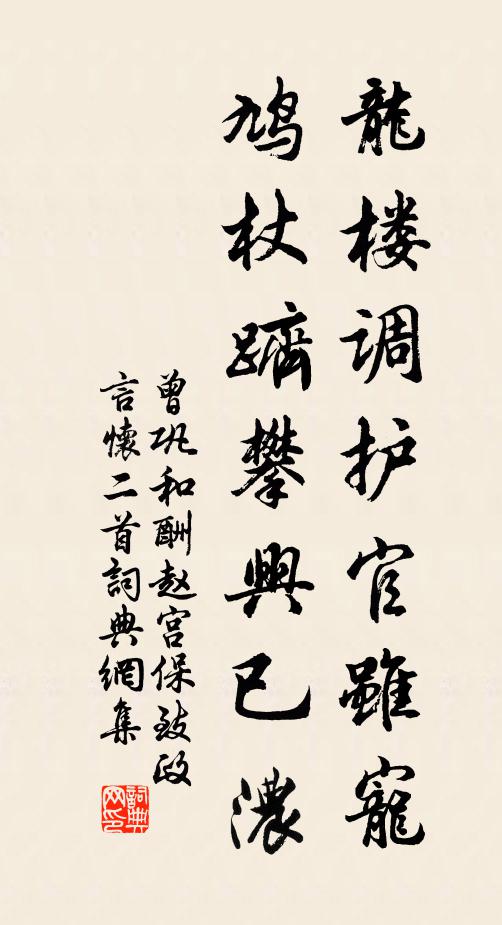 龍楼调护官雖寵
鳩杖躋攀興已濃
曾巩和酬赵宫保致政
言懷二首詞典網集
詞典
网印